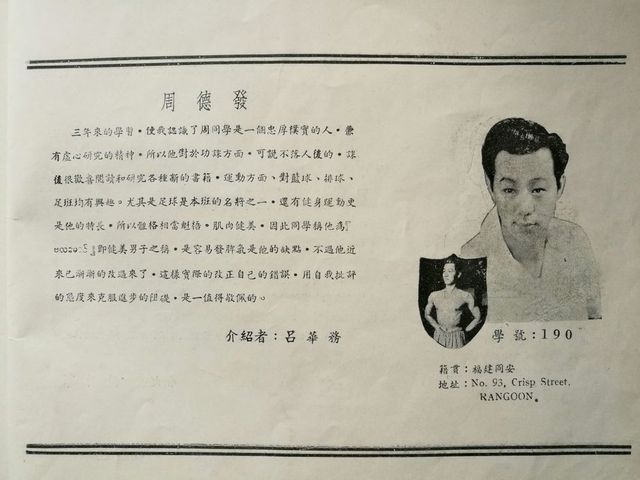 周德發
三年來的學習，使我認識了周同學是一個忠厚樸實的人，兼
有虛心研究的精神，所以他對於功課方面，可說不落人後的，課
後很歡喜閱讀和研究各種新的書籍，運動方面、對籃球、排球、
足班均有興趣。尤其是足球是本班的名將之一，還有健身運動更
是他的特長，所以體格相當魁梧，肌肉健美，因此同學稱他為「
即健美男子之稱，是容易發脾氣是他的缺點，不過他近
來已漸漸的改過來了，這樣實際的改正自己的錯誤，用自我批評
的態度來克服進步的阻礙，是一值得敬佩的。
介紹者：呂華務
學號：190
籍貫：福建同安
地址：No. 93, Crisp Street,
RANGOON.